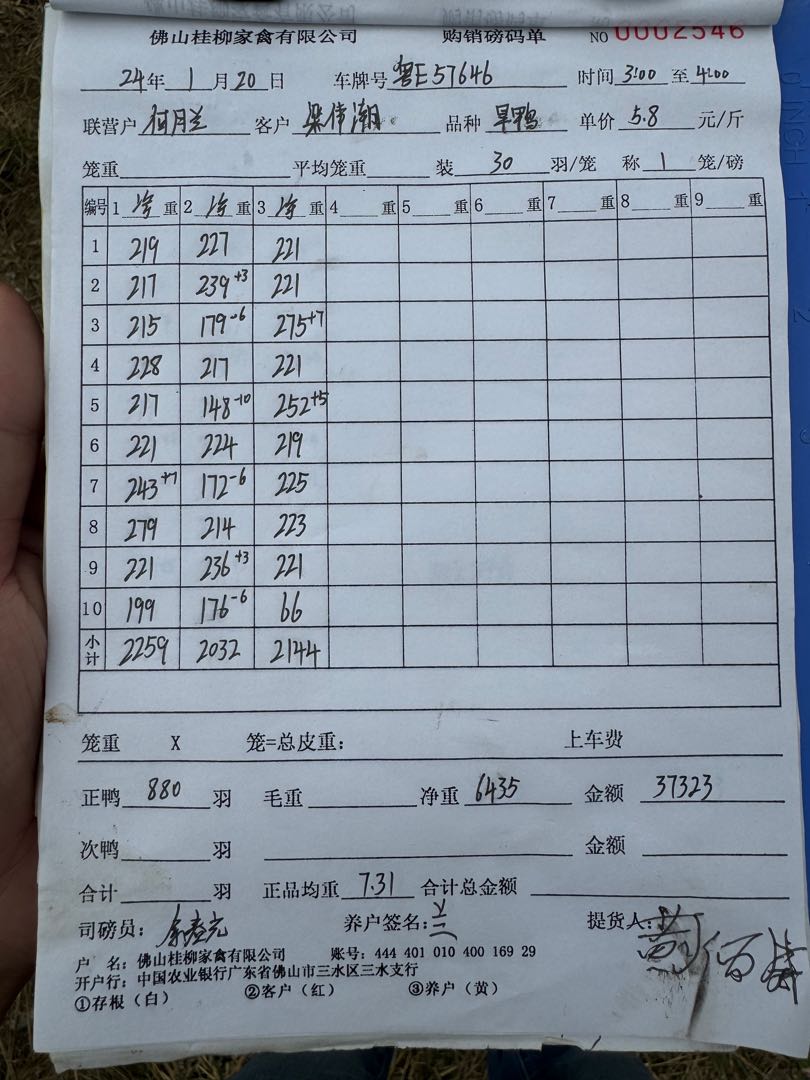 佛山桂柳家禽有限公司 购销磅码单 NO 0002546
24年 1月 20日 车牌号 粤E57646 时间 3:00 至 4:00
联营户 何月兰 客户 梁伟潮 品种 旱鸭 单价 5.8 元/斤
笼重 平均笼重 装 30 羽/笼 称 1 笼/磅
编号 1 净 重 2 净 重 3 净 重 4 重 5 重 6 重 7 重 8 重 9 重
1 219 227 221
2 217 239+3 221
3 215 179-6 275+7
4 228 217 221
5 217 148-10 252+5
6 221 224 219
7 243+7 172-6 225
8 279 214 223
9 221 236+3 221
10 199 176-6 66
小计 2259 2032 2144
笼重 X 笼=总皮重: 上车费
正鸭 880 羽 毛重 净重 6435 金额 37323
次鸭 羽 金额
合计 羽 正品均重 7.31 合计总金额
司磅员: 养户签名: 提货人:
户 名: 佛山桂柳家禽有限公司 账号: 444 401 010 400 169 29
开户行: 中国农业银行广东省佛山市三水区三水支行
①存根（白） ②客户（红） ③养户（黄）